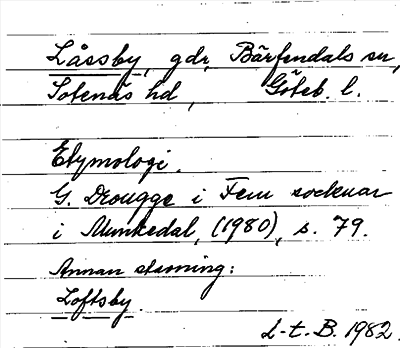 Låssby, gdr, Bärfendals sn,
Sotenäs hd, Göteb. l.
Etymologi.
G. Drougge i Fem socknar
i Munkedal, (1980), s. 79.
Annan stavning:
Loftsby
L-t. B. 1982.